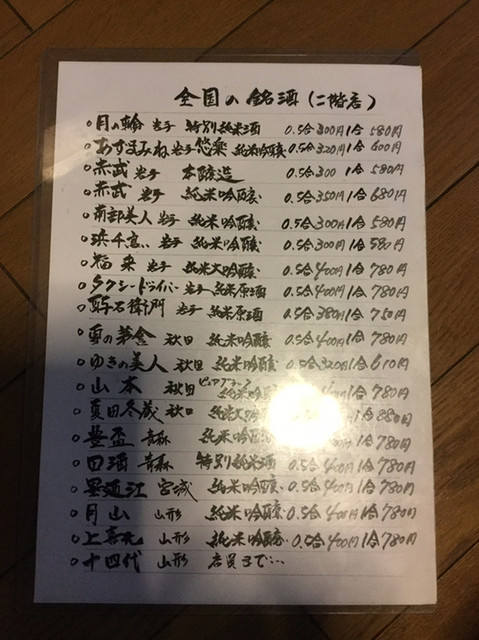 全国の銘酒(二階店)
○月の輪 岩手 特別純米酒 0.5合300円1合580円
○あずまみね 岩手 悠楽 純米吟醸 0.5合320円1合600円
○赤武 岩手 本醸造 0.5合300 1合580円
○赤武 岩手 純米吟醸 0.5合350円1合680円
○南部美人 岩手 純米吟醸 0.5合300円1合580円
○浜千鳥 岩手 純米吟醸 0.5合300円1合580円
○福来 岩手 純米大吟醸 0.5合400円1合780円
○タクシードライバー 岩手 純米原酒 0.5合400円1合780円
○酉与右衛門 岩手 純米原酒 0.5合380円1合750円
○雪の茅舎 秋田 純米吟醸 0.5合400円1合780円
○ゆきの美人 秋田 純米吟醸 0.5合320円1合610円
○山本 秋田 ピュアブラック 純米吟醸 1合780円
○夏田冬蔵 秋田 純米大吟醸 1合880円
○豊盃 青森 純米吟醸 1合780円
○田酒 青森 特別純米酒 0.5合400円1合780円
○墨廼江 宮城 純米吟醸 0.5合400円1合780円
○月山 山形 純米吟醸 0.5合400円1合780円
○上喜元 山形 純米吟醸 0.5合400円1合780円
○十四代 山形 店員まで…